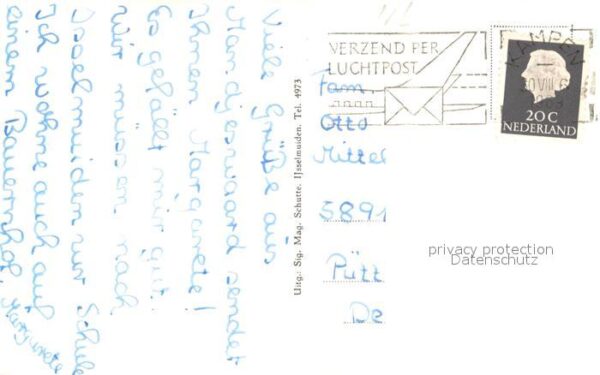 Viele Grüße aus
Mandjeswaard sendet
Ihnen Margarete!
Es gefällt mir gut.
Wir müssen nach
IJsselmuiden zur Schule
Ich wohne auch auf
einem Bauernhof.
Margarete
Uitg.: Sig. Mag. Schutte. IJsselmuiden. Tel. 4973
VERZEND PER
LUCHTPOST
KAMPEN
20 C
NEDERLAND
Fam
Otto
5891
Pütt
De
privacy protection
Datenschutz